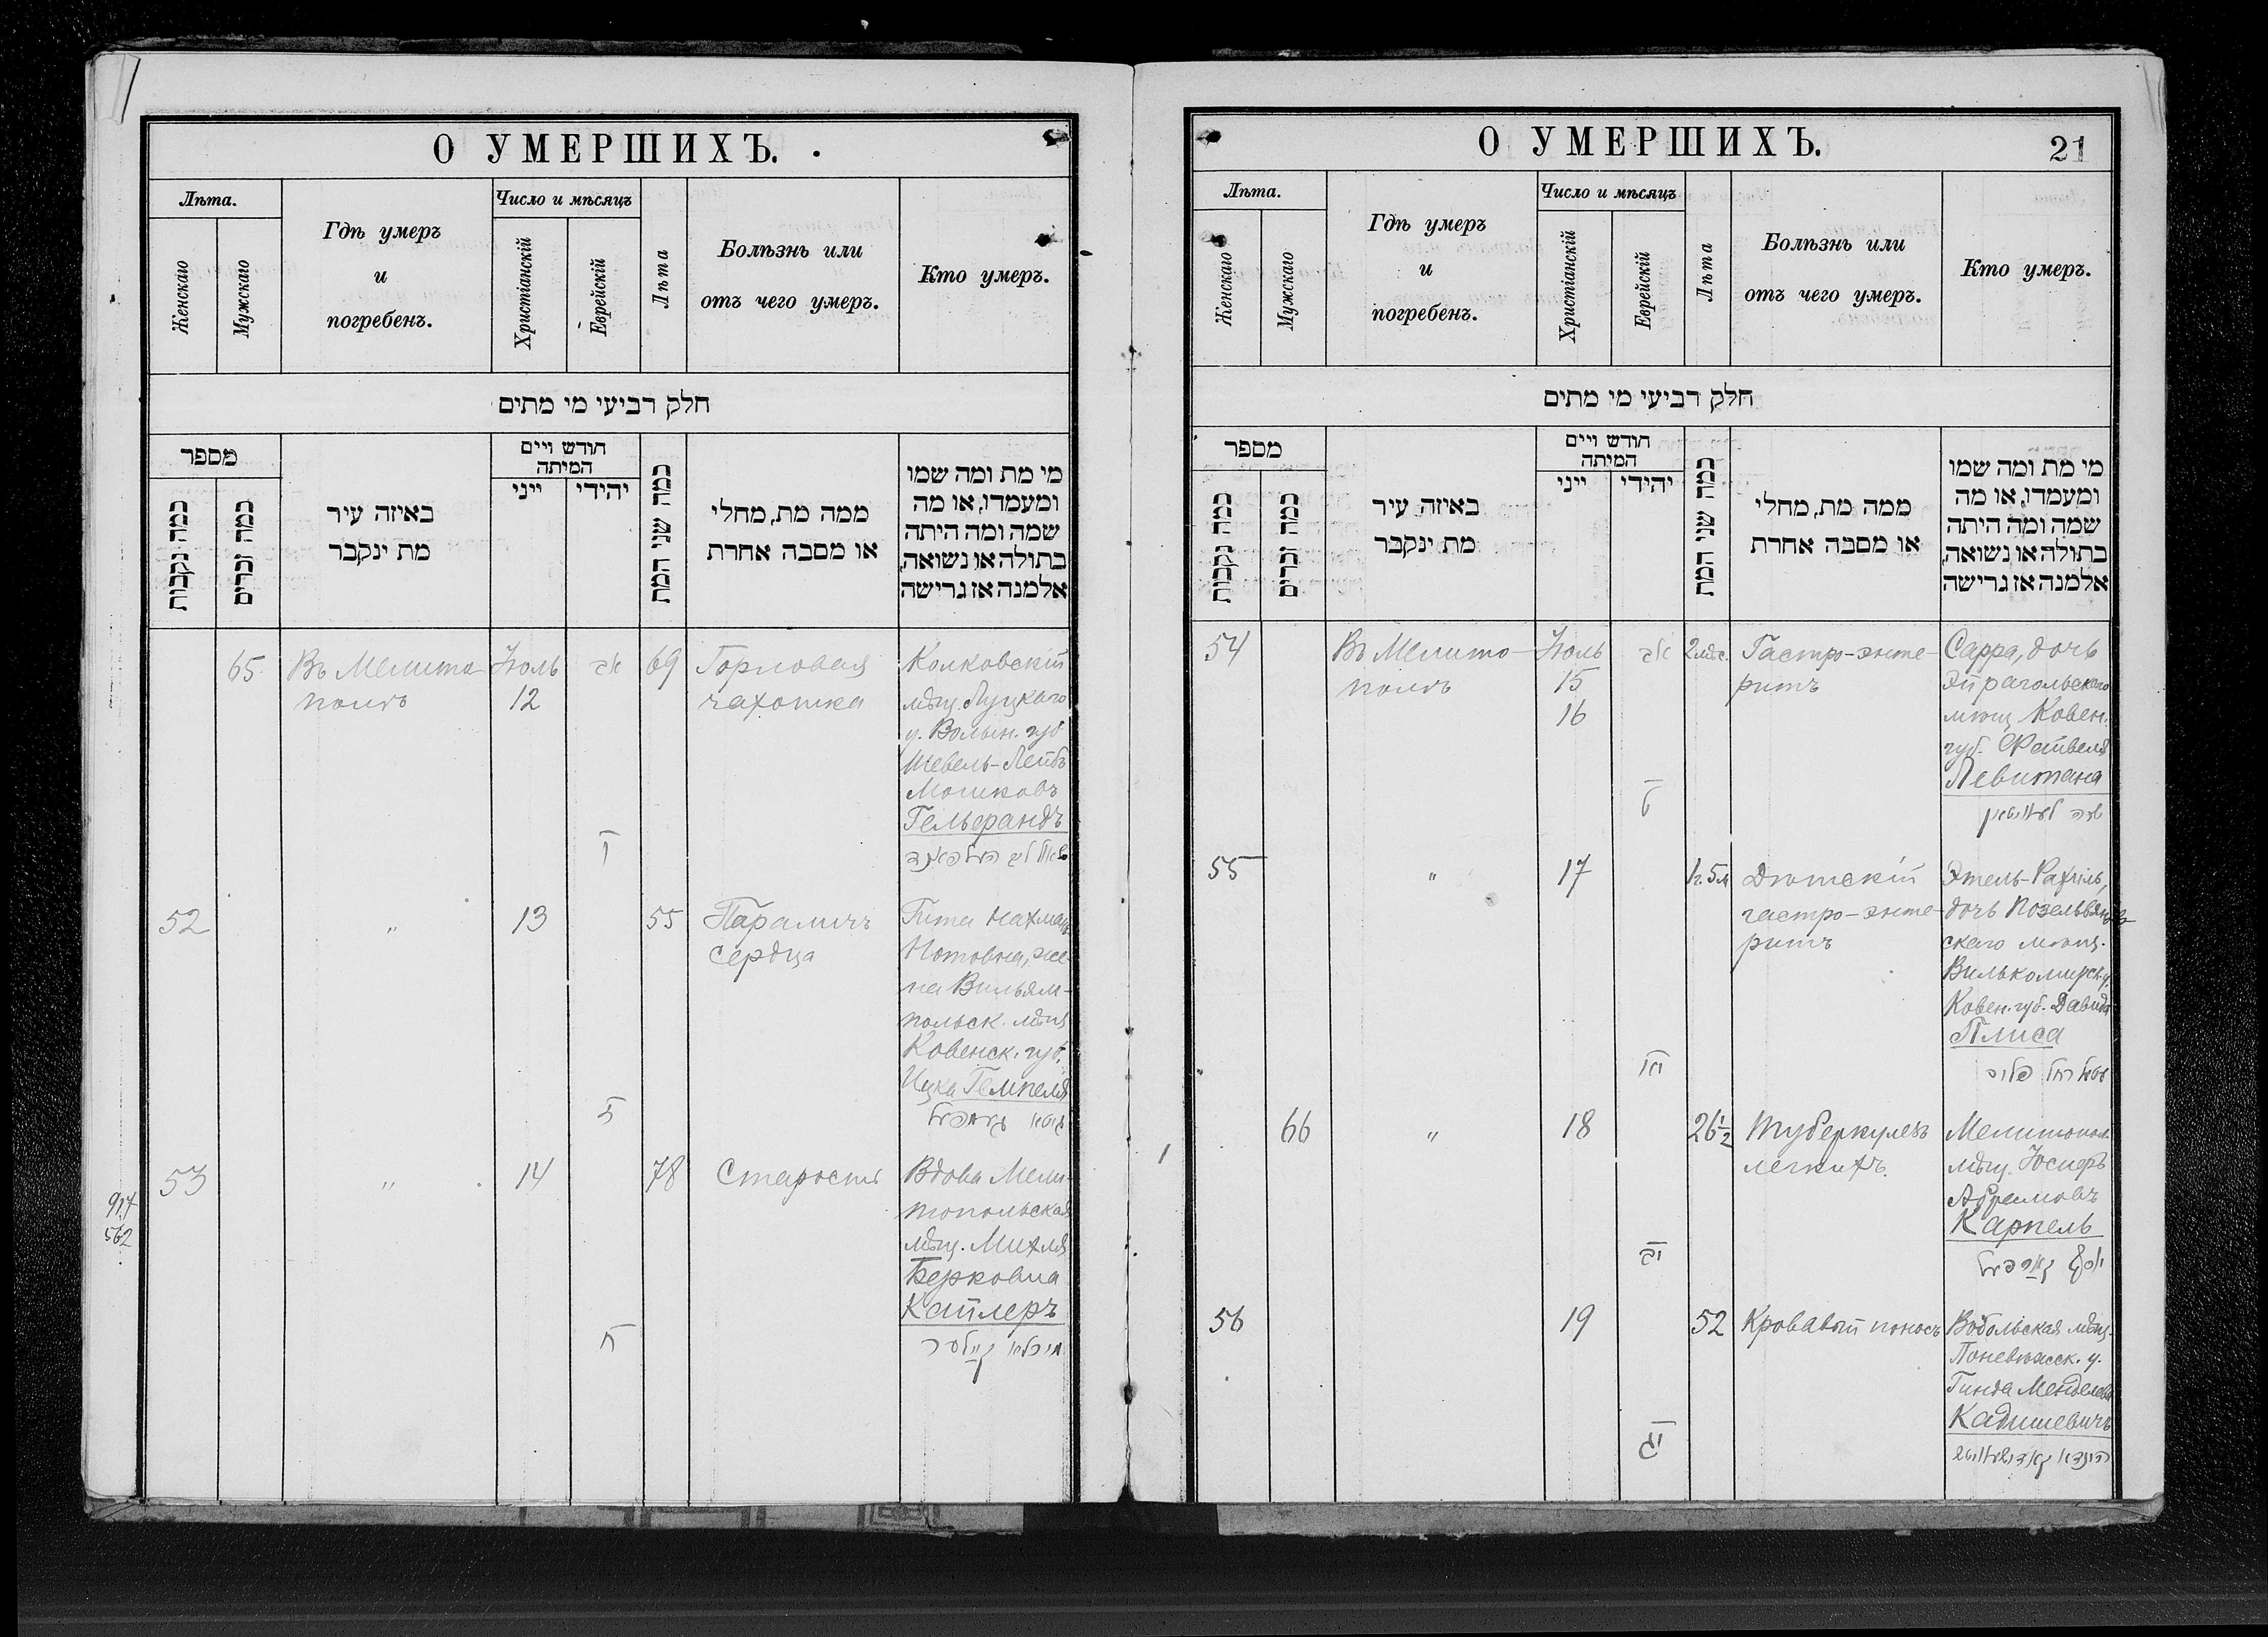 О УМЕРШИХЪ.
Лѣта.
Женскаго
Мужскаго
Гдѣ умеръ
и
погребенъ.
Число и мѣсяцъ
Христіанскій
Еврейскій
Лѣта
Болѣзнь или
отъ чего умеръ.
Кто умеръ.
חלק רביעי מי מתים
מספר
כמה נקבות
כמה זכרים
באיזה עיר
מת ינקבר
חודש ויים
המיתה
ייני
יהודי
כמה שני המת
ממה מת, מחלי
או מסבה אחרת
מי מת ומה שמו
ומעמדו, או מה
שמה ומה היתה
בתולה או נשואה,
אלמנה אז גרישה
65
Въ Мелито-
полѣ
Іюль
12
אב
ו
69
Горловая
чахотка
Колковскій
мѣщ. Луцкаго
у. Волын. губ
Шевель-Лейбъ
Мошковъ
Гельфандъ
52
"
13
ז
55
Параличъ
сердца
Гита Нахмано-
Нотовна, же-
на Вильям-
польск. мѣщ
Ковенск. губ.
Ицка Гемпеля
גיטא געמפעל
53
"
14
ח
78
Старость
Вдова Мели-
топольская
мѣщ. Михля
Берковна
Каплеръ
917
562
О УМЕРШИХЪ.
21
Лѣта.
Женскаго
Мужскаго
Гдѣ умеръ
и
погребенъ.
Число и мѣсяцъ
Христіанскій
Еврейскій
Лѣта
Болѣзнь или
отъ чего умеръ.
Кто умеръ.
חלק רביעי מי מתים
מספר
כמה נקבות
כמה זכרים
באיזה עיר
מת ינקבר
חודש ויים
המיתה
ייני
יהודי
כמה שני המת
ממה מת, מחלי
או מסבה אחרת
מי מת ומה שמו
ומעמדו, או מה
שמה ומה היתה
בתולה או נשואה,
אלמנה אז גרישה
54
Въ Мелито-
полѣ
Іюль
15
16
אב
ט
2 мѣс.
Гастро-энте-
ритъ
Сарра, дочь
Эйрагольскаго
мѣщ Ковен.
губ. Файвеля
Левитана
שרה לעוויטאן
55
"
17
1 г. 5 м
Дѣтскій
гастро-энте-
ритъ
Этель-Рахиль,
дочь
скаго мѣщ.
Вилькомирск. у.
Ковен. губ. Давида
Плиса
עטל רחל פליס
66
"
18
יב
26 1/2
Туберкулезъ
легкихъ.
Мелитопол.
мѣщ. Іосифъ
Абрамовъ
Карпель
יוסף קארפעל
56
19
יג
52
Кровавый поносъ
Вобольская мѣщ-
Поневѣжск. у.
Гинда Менделева
Кадишевичъ
הינדא קאדישעוויטש